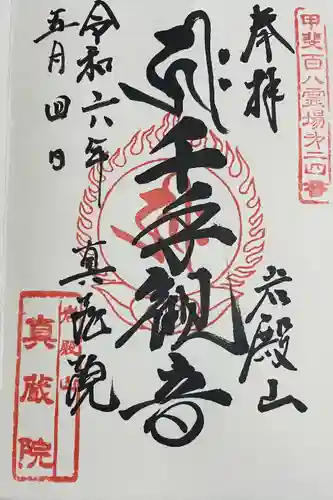 甲斐百八霊場第二四番
奉拝
岩殿山
千手観音
令和六年
五月四日
真蔵院
真蔵院